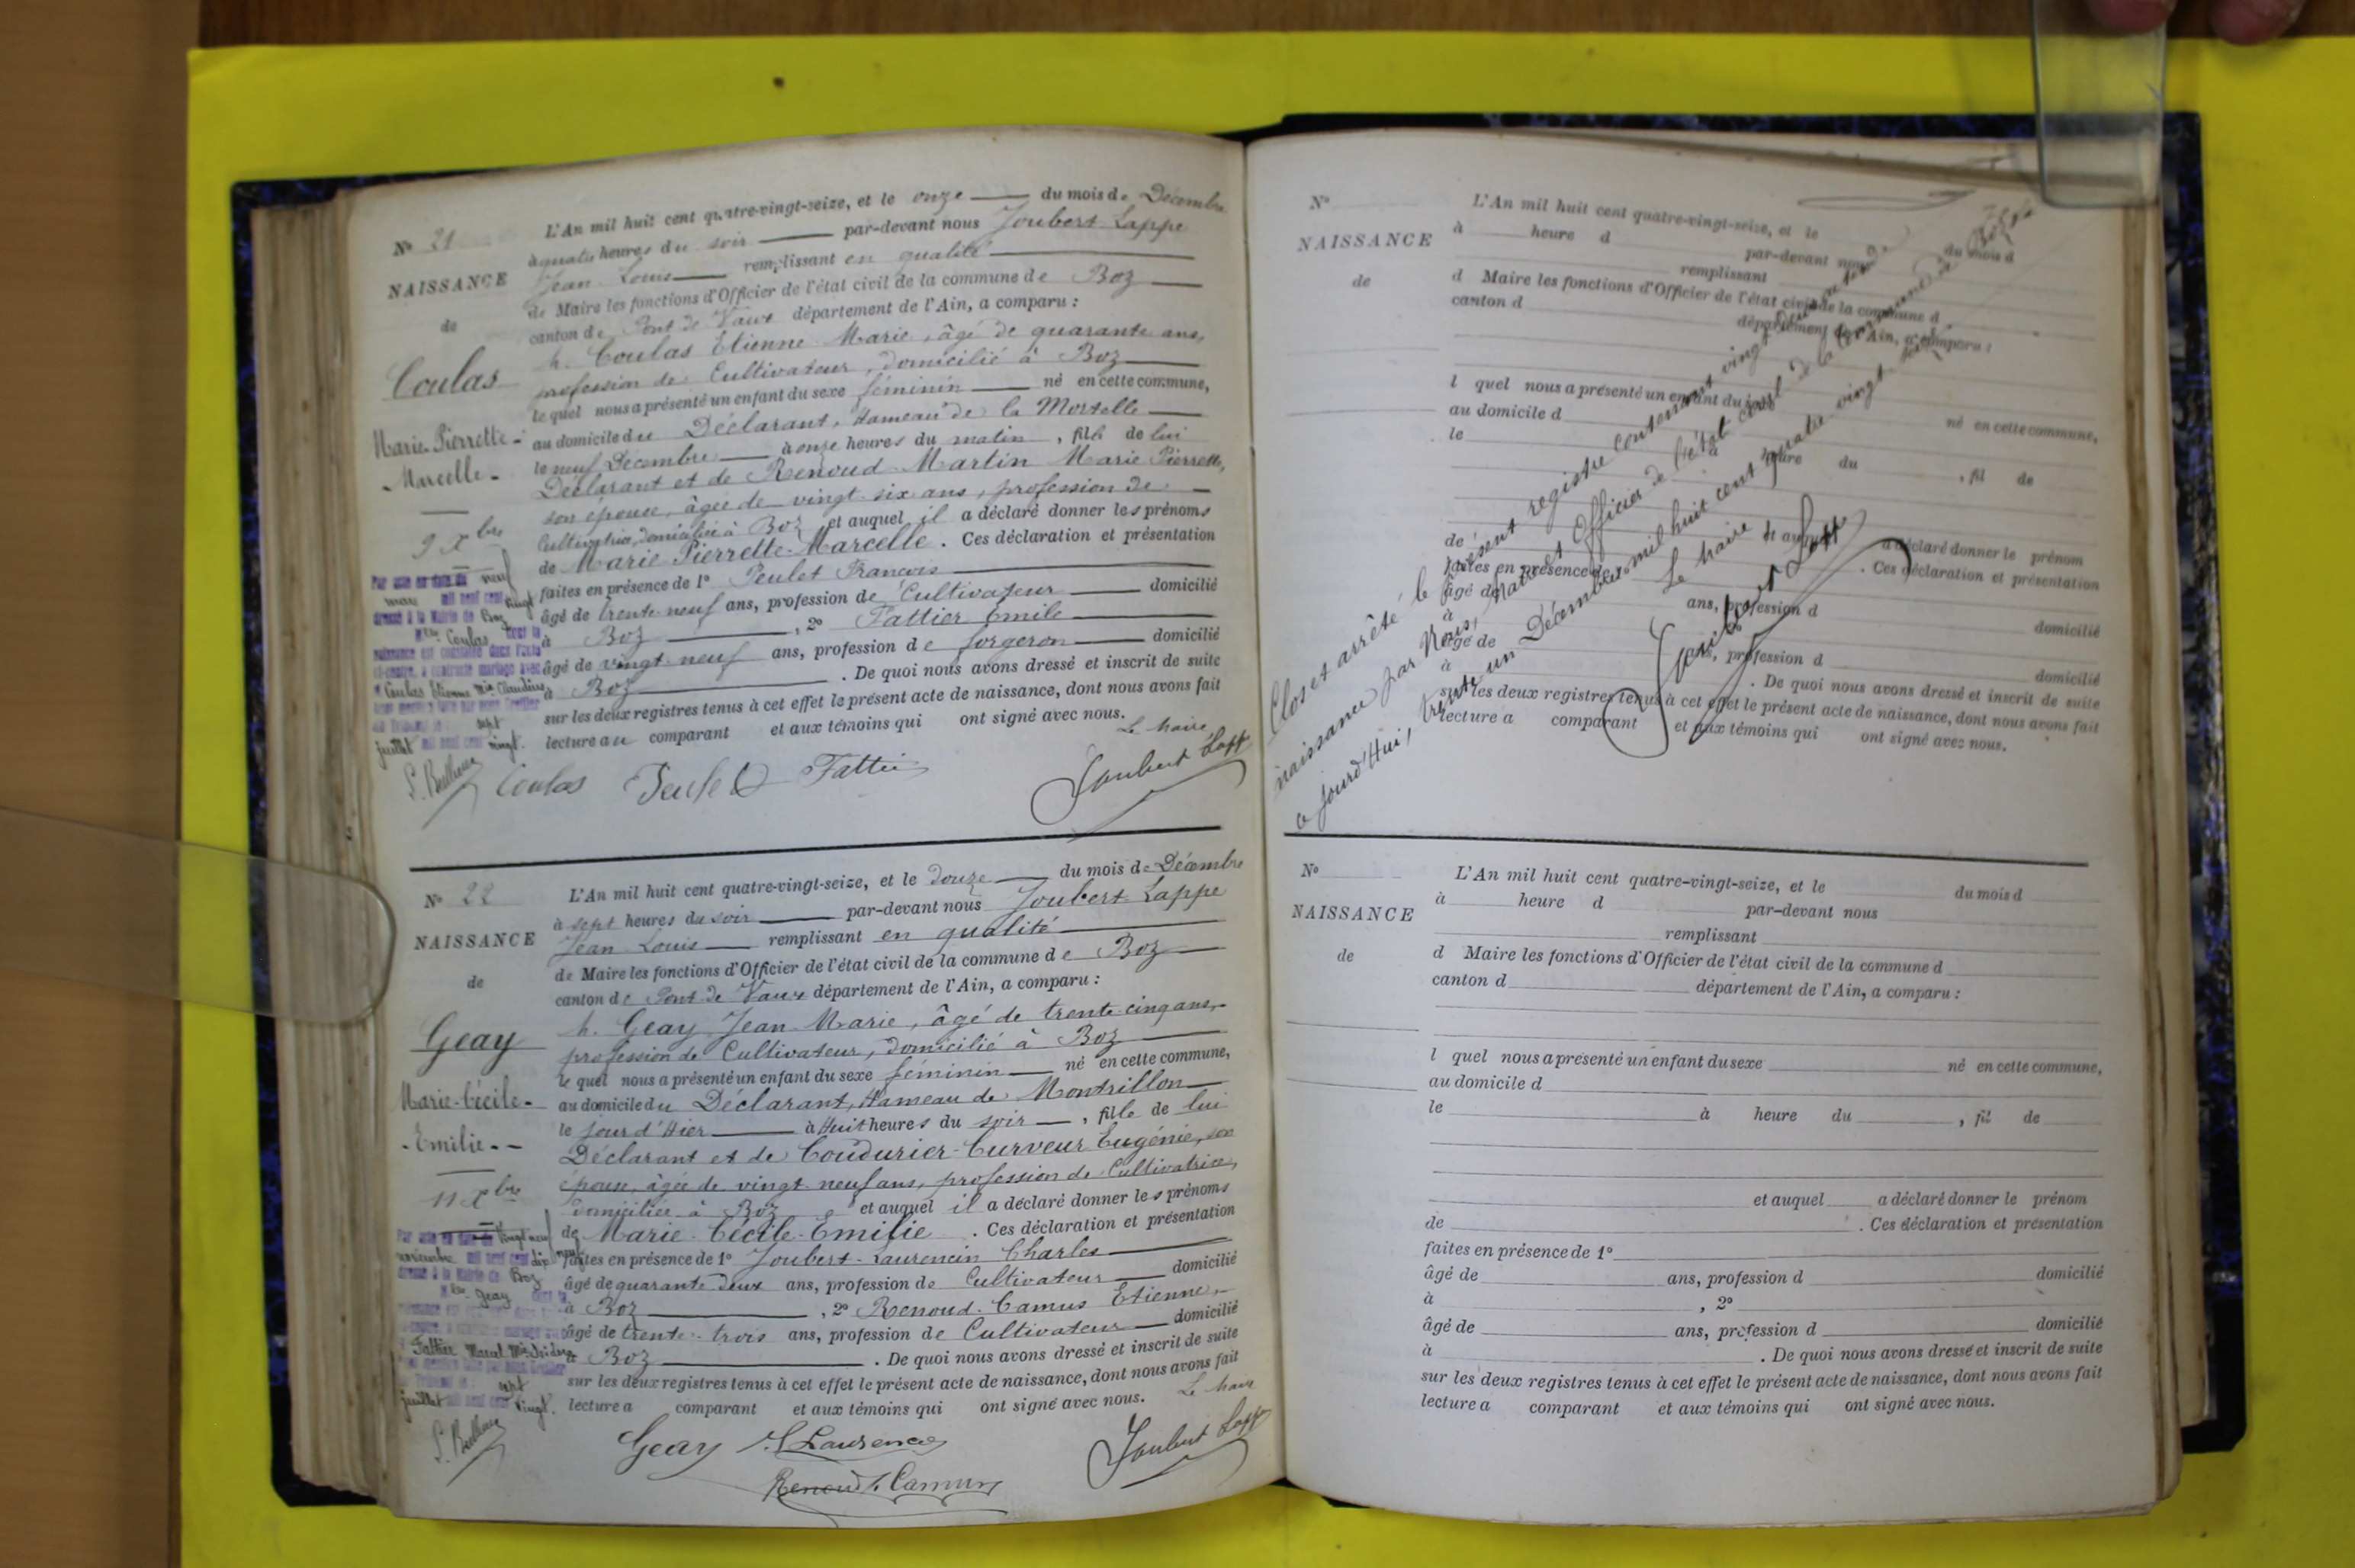 N° 21
NAISSANCE
de
Coulas
Marie-Pierrette-
Marcelle-
9 Xbre
L'An mil huit cent quatre-vingt-seize, et le onze du mois de Décembre
à quatre heures du soir par-devant nous Joubert-Lappe
Jean Louis remplissant en qualité
de Maire les fonctions d'Officier de l'état civil de la commune de Boz
canton de Pont de Vaux département de l'Ain, a comparu :
M. Coulas Etienne Marie, âgé de quarante ans,
profession de Cultivateur, domicilié à Boz
le quel nous a présenté un enfant du sexe féminin né en cette commune,
au domicile du Déclarant, Hameau de la Mortelle
le neuf Décembre à onze heures du matin, fille de lui
Déclarant et de Renoud-Martin Marie Pierrette,
son épouse, âgée de vingt-six ans, profession de
Cultivatrice, domiciliée à Boz et auquel il a déclaré donner les prénoms
de Marie-Pierrette-Marcelle. Ces déclaration et présentation
faites en présence de 1° Peulet François
âgé de trente-neuf ans, profession de Cultivateur domicilié
à Boz, 2° Fattier Emile
âgé de vingt-neuf ans, profession de forgeron domicilié
à Boz. De quoi nous avons dressé et inscrit de suite
sur les deux registres tenus à cet effet le présent acte de naissance, dont nous avons fait
lecture au comparant et aux témoins qui ont signé avec nous.
Par acte en date du neuf
mars mil neuf cent vingt
dressé à la Mairie de Boz
Mlle Coulas dont la
naissance est constatée dans l'acte
ci-contre, a contracté mariage avec
M. Coulas Etienne Mie Claudius
sept
juillet mil neuf cent vingt.
Le Maire
Coulas Peulet Fattier Joubert Lapp
N° 22
NAISSANCE
de
Geay
Marie-Cécile-
-Emilie-
11 Xbre
L'An mil huit cent quatre-vingt-seize, et le douze du mois de Décembre
à sept heures du soir par-devant nous Joubert-Lappe
Jean Louis remplissant en qualité
de Maire les fonctions d'Officier de l'état civil de la commune de Boz
canton de Pont de Vaux département de l'Ain, a comparu :
M. Geay Jean-Marie, âgé de trente-cinq ans,
profession de Cultivateur, domicilié à Boz
le quel nous a présenté un enfant du sexe féminin né en cette commune,
au domicile du Déclarant, Hameau de Montrillon
le jour d'Hier à Huit heures du soir, fille de lui
Déclarant et de Coudurier-Curveur Eugénie, son
épouse, âgée de vingt-neuf ans, profession de Cultivatrice,
domiciliée à Boz et auquel il a déclaré donner les prénoms
de Marie-Cécile-Emilie. Ces déclaration et présentation
faites en présence de 1° Joubert-Laurencin Charles
âgé de quarante-deux ans, profession de Cultivateur domicilié
à Boz, 2° Renoud-Camus Etienne,
âgé de trente-trois ans, profession de Cultivateur domicilié
à Boz. De quoi nous avons dressé et inscrit de suite
sur les deux registres tenus à cet effet le présent acte de naissance, dont nous avons fait
lecture a comparant et aux témoins qui ont signé avec nous.
vingt neuf
novembre mil neuf cent dix neuf
dressé à la Mairie de Boz
Mlle Geay
Fattier Marcel Mie Isidore
sept
juillet mil neuf cent vingt.
Le Maire
Geay Laurencin Joubert Lapp
Renoud Camus
N°
NAISSANCE
de
L'An mil huit cent quatre-vingt-seize, et le du mois d
à heure d par-devant nous
remplissant
d Maire les fonctions d'Officier de l'état civil de la commune d
canton d département de l'Ain, a comparu :
l quel nous a présenté un enfant du sexe né en cette commune,
au domicile d
le à heure du , fil de
et auquel a déclaré donner le prénom
de . Ces déclaration et présentation
faites en présence de
âgé de ans, profession d domicilié
à
âgé de ans, profession d domicilié
à . De quoi nous avons dressé et inscrit de suite
sur les deux registres tenus à cet effet le présent acte de naissance, dont nous avons fait
lecture a comparant et aux témoins qui ont signé avec nous.
Clos et arrêté le présent registre contenant vingt deux actes de
naissance par Nous, Maire et Officier de l'état civil de la commune de Boz
aujourd'Hui, trente un Décembre mil huit cent quatre vingt seize
Le Maire
Joubert Lapp
N°
NAISSANCE
de
L'An mil huit cent quatre-vingt-seize, et le du mois d
à heure d par-devant nous
remplissant
d Maire les fonctions d'Officier de l'état civil de la commune d
canton d département de l'Ain, a comparu :
l quel nous a présenté un enfant du sexe né en cette commune,
au domicile d
le à heure du , fil de
et auquel a déclaré donner le prénom
de . Ces déclaration et présentation
faites en présence de 1°
âgé de ans, profession d domicilié
à , 2°
âgé de ans, profession d domicilié
à . De quoi nous avons dressé et inscrit de suite
sur les deux registres tenus à cet effet le présent acte de naissance, dont nous avons fait
lecture a comparant et aux témoins qui ont signé avec nous.